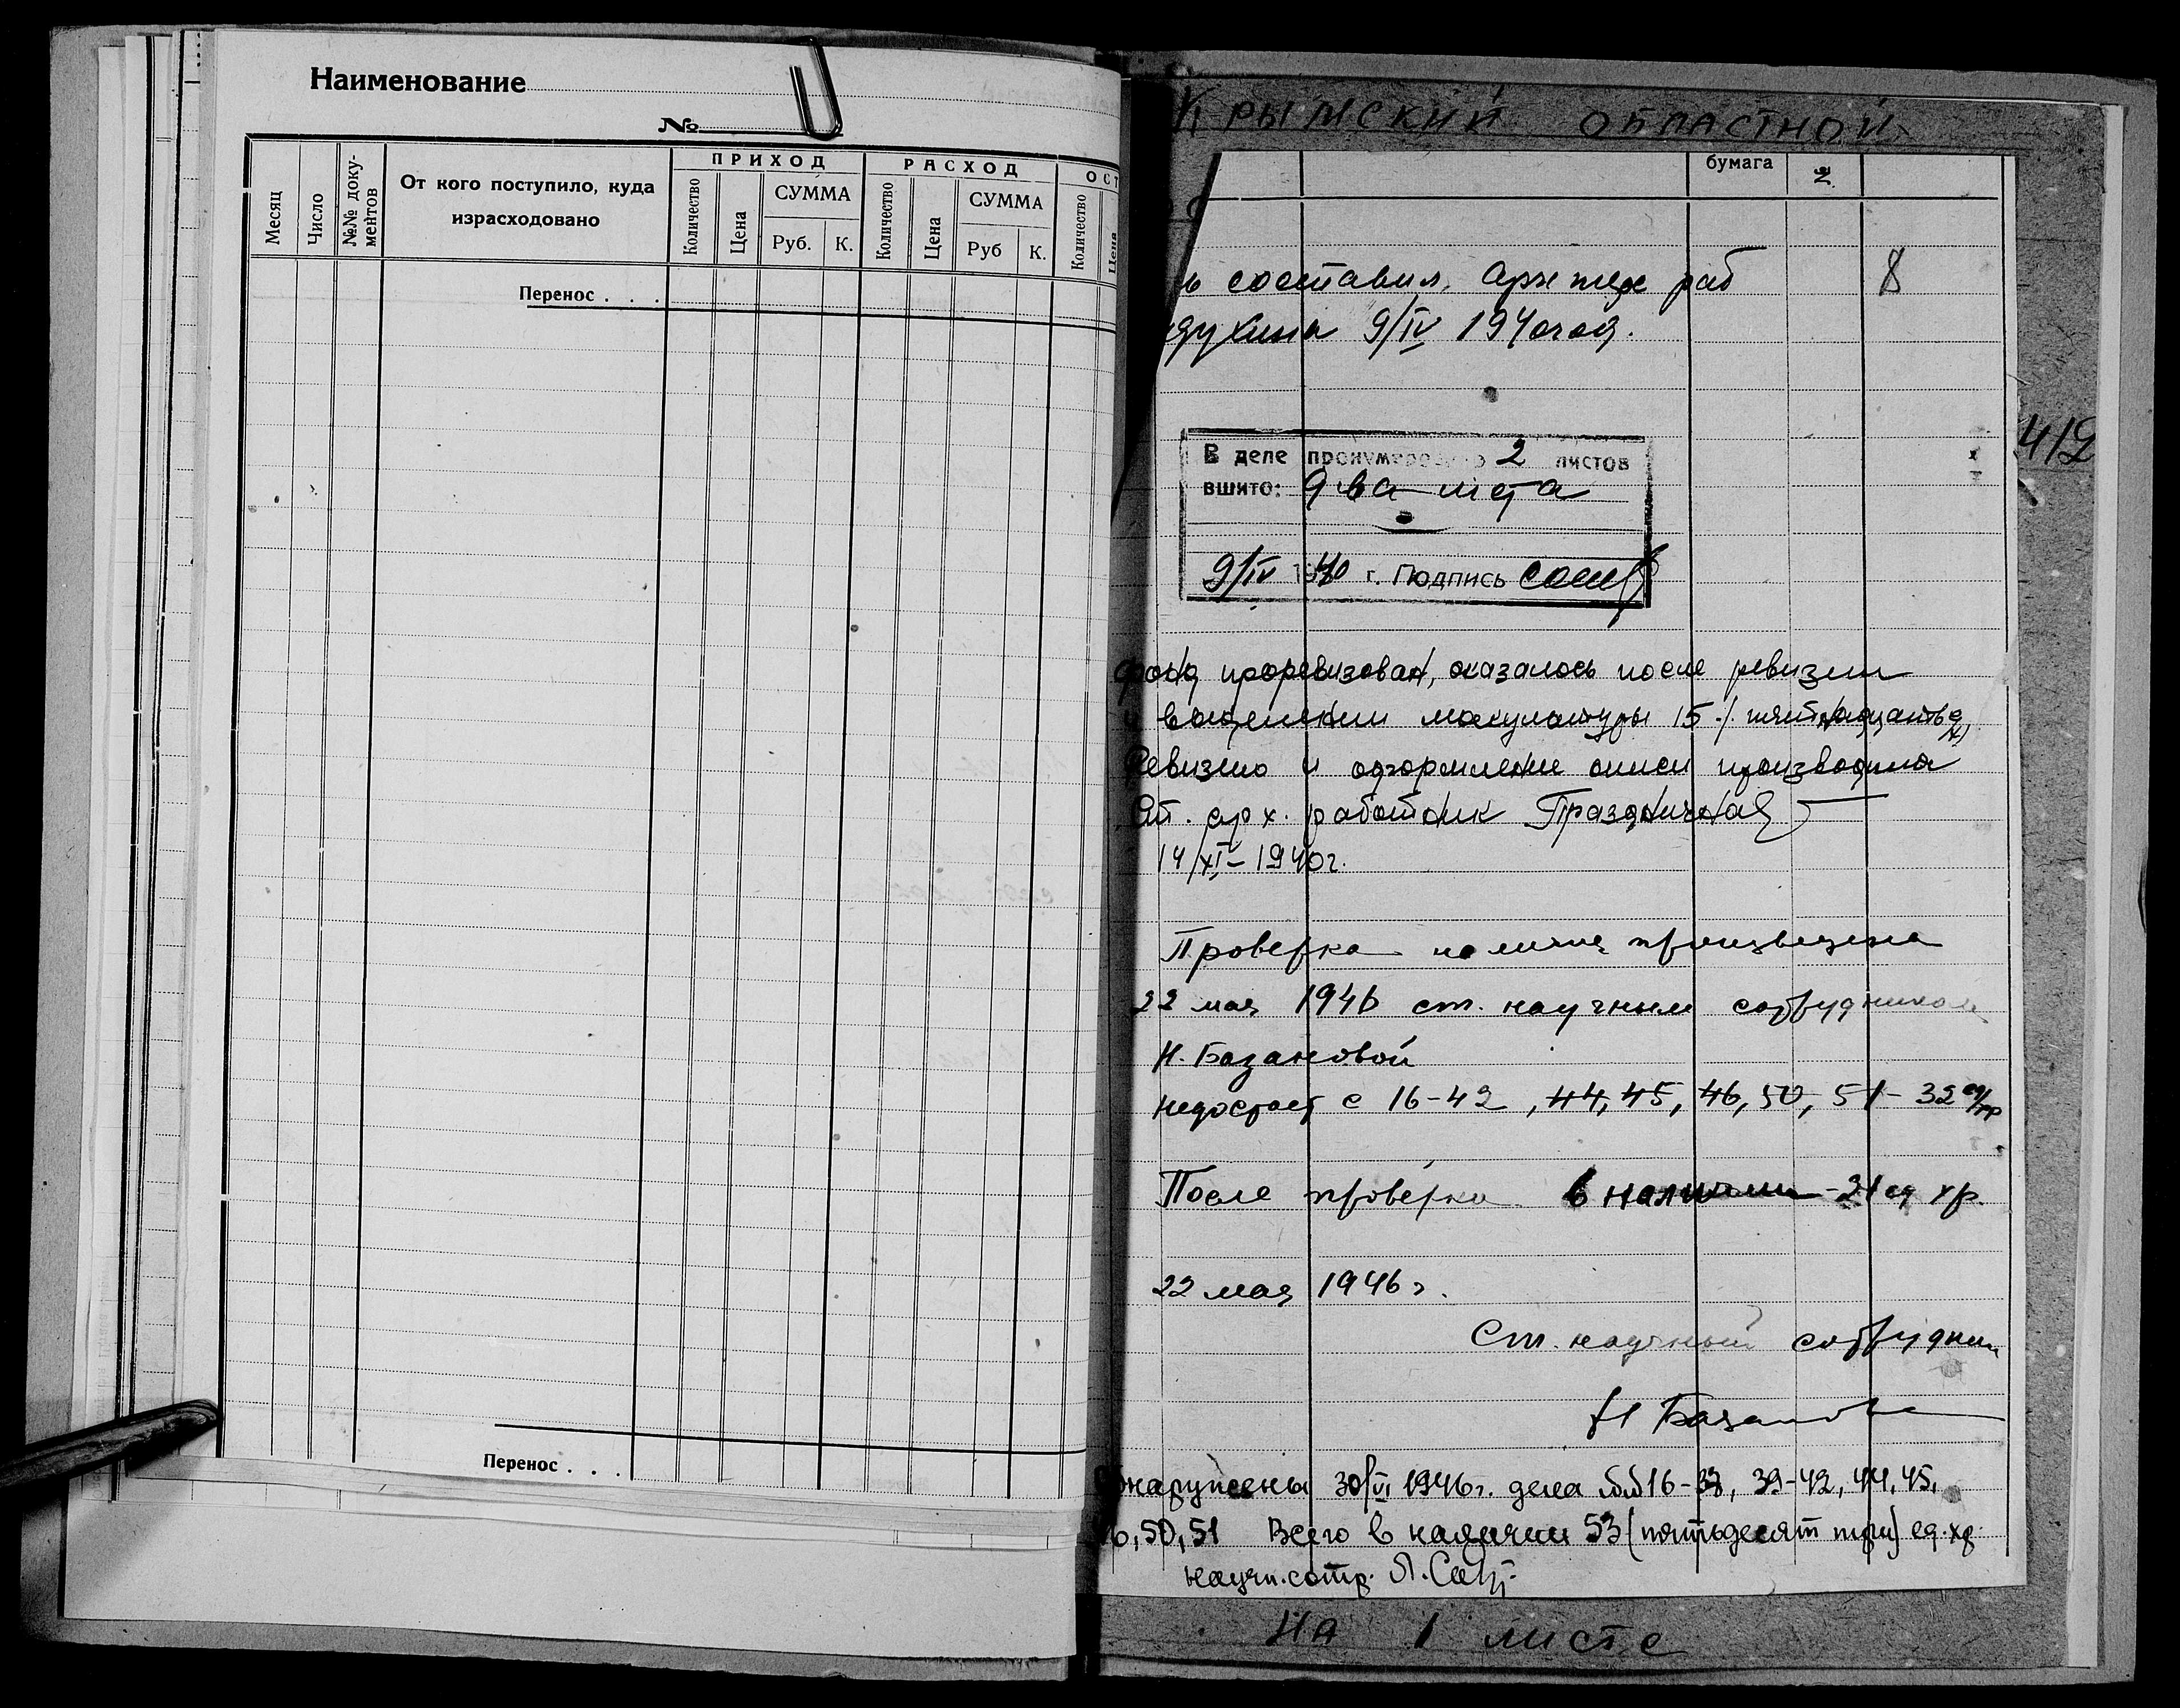 Наименование
№
Месяц
Число
№№ доку-
ментов
От кого поступило, куда
израсходовано
ПРИХОД
Количество
Цена
СУММА
Руб.
К.
РАСХОД
Количество
Цена
СУММА
Руб
К.
ОСТ
Количество
Цена
Перенос . . .
Перенос . . .
КРЫМСКИЙ ОБЛАСТНОЙ
бумага
ь составил, Арх тех раб
9/IV 1940 год.
8
В деле пронумеровано 2 листов
вшито: два листа
9/IV 1940 г. Подпись
412
фонд проревизован, оказалось после ревизии
и выделении макулатуры 15 /. пятнадцать д.
Ревизию и оформление описи производила
Ст. арх. работник Праздничная
14/XI–1940г.
Проверка наличия произведена
22 мая 1946 ст. научным сотрудником
Н. Базановой
недостает с 16-42, 44, 45, 46, 50, 51 - 32 ед/хр
После проверки в наличии - 21 ед хр.
22 мая 1946 г.
Ст. научный сотрудник
Н Базанова
Обнаружены 30/VI 1946г. дела №№ 16-37, 39-42, 44, 45,
46, 50, 51 Всего в наличии 53 (пятьдесят три) ед. хр.
научн. сотр.
На 1 листе